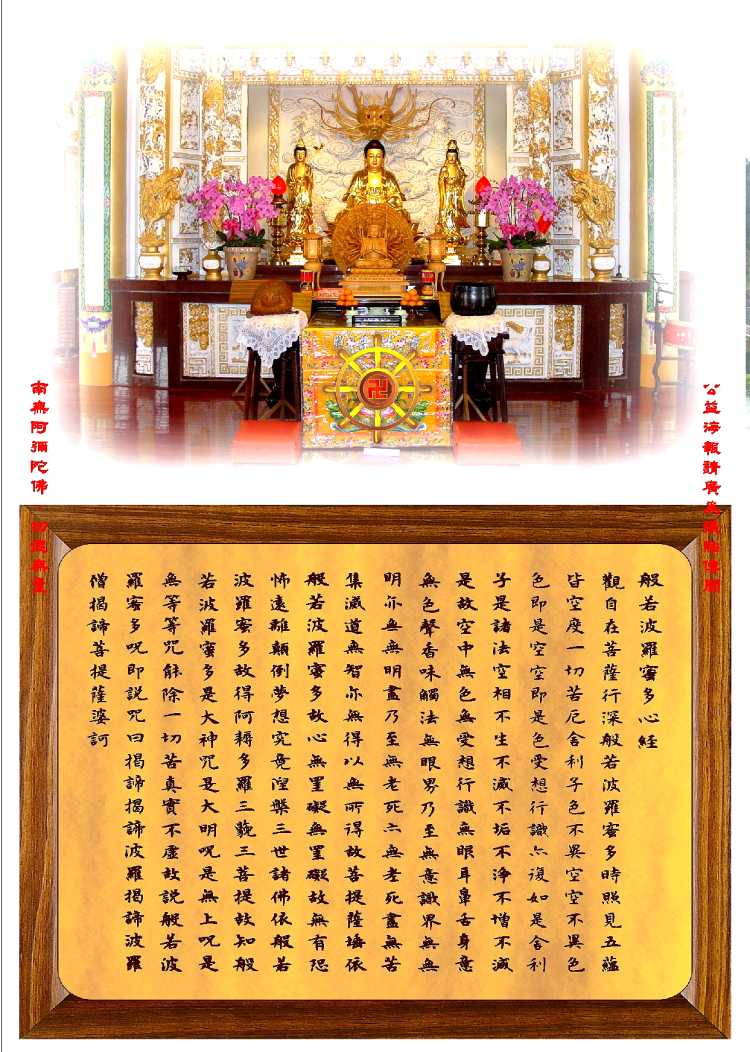 公益海報請廣為
南無阿彌陀佛 功德無量
卍
般若波羅蜜多心経
觀自在菩薩行深般若波羅蜜多時照見五蘊
皆空度一切苦厄舍利子色不異空空不異色
色即是空空即是色受想行識亦復如是舍利
子是諸法空相不生不滅不垢不淨不增不減
是故空中無色無受想行識無眼耳鼻舌身意
無色聲香味觸法無眼界乃至無意識界無無
明亦無無明盡乃至無老死亦無老死盡無苦
集滅道無智亦無得以無所得故菩提薩埵依
般若波羅蜜多故心無罣礙無罣礙故無有恐
怖遠離顛倒夢想究竟涅槃三世諸佛依般若
波羅蜜多故得阿耨多羅三藐三菩提故知般
若波羅蜜多是大神咒是大明咒是無上咒是
無等等咒能除一切苦真實不虛故説般若波
羅蜜多咒即説咒曰揭諦揭諦波羅揭諦波羅
僧揭諦菩提薩婆訶